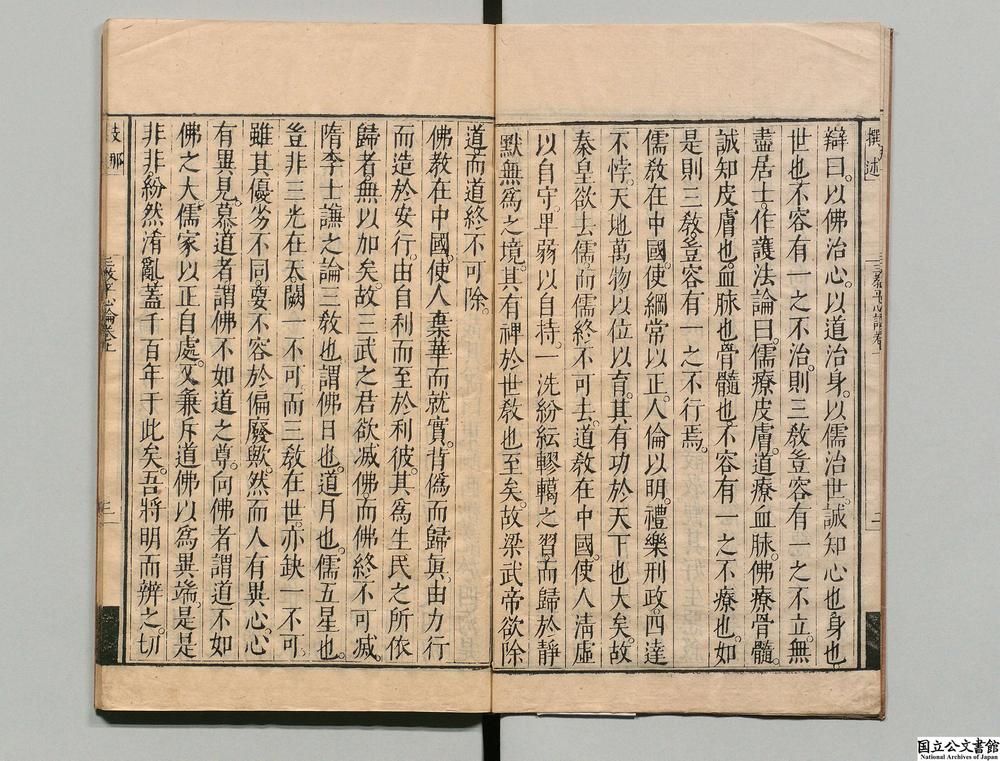 撰述
三教平心論卷上
二
辯曰。以佛治心。以道治身。以儒治世。誠知心也身也
世也不容有一之不治。則三教豈容有一之不立。無
盡居士。作護法論曰。儒療皮膚。道療血脉。佛療骨髓。
誠知皮膚也。血脉也。骨髓也。不容有一之不療也。如
是則三教豈容有一之不行焉。
儒教在中國。使綱常以正。人倫以明。禮樂刑政。四達
不悖。天地萬物以位以育。其有功於天下也大矣。故
秦皇欲去儒而儒終不可去。道教在中國。使人清虛
以自守。卑弱以自持。一洗紛紜轇轕之習。而歸於靜
默無爲之境。其有裨於世教也至矣。故梁武帝欲除
道。而道終不可除。
佛教在中國。使人棄華而就實。背僞而歸眞。由力行
而造於安行。由自利而至於利彼。其爲生民之所依
歸者。無以加矣。故三武之君欲滅佛。而佛終不可滅。
隋李士謙之論三教也。謂佛日也。道月也。儒五星也。
豈非三光在天。闕一不可。而三教在世。亦缺一不可。
雖其優劣不同。要不容於偏廢歟。然而人有異心。心
有異見。慕道者。謂佛不如道之尊。向佛者謂道不如
佛之大。儒家以正自處。又兼斥道佛以爲異端。是是
非非。紛然淆亂。蓋千百年于此矣。吾將明而辨之。切
支那
三教平心論卷上
三
国立公文書館
National Archives of Japan